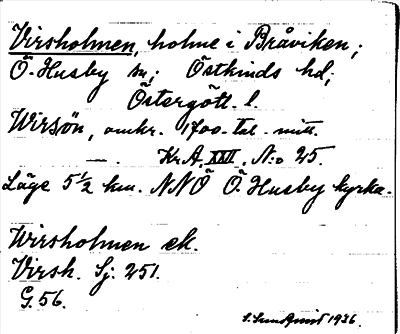 Virsholmen, holme i Bråviken;
Ö. Husby sn; Östkinds hd;
Östergötl. l.
Wirsön, omkr. 1700-tal. mitt.
— . Kr. A. XXVI. N:o 25.
Läge 5½ km. NNÖ Ö. Husby kyrka.
Wirsholmen ek.
Virsh. Sj: 251.
G 56.
S. Sundqvist 1936.